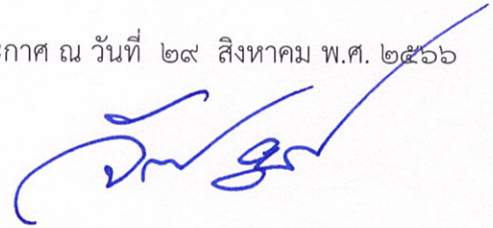 ะกาศ ณ วันที่ ๒๙ สิงหาคม พ.ศ. ๒๕๖๖